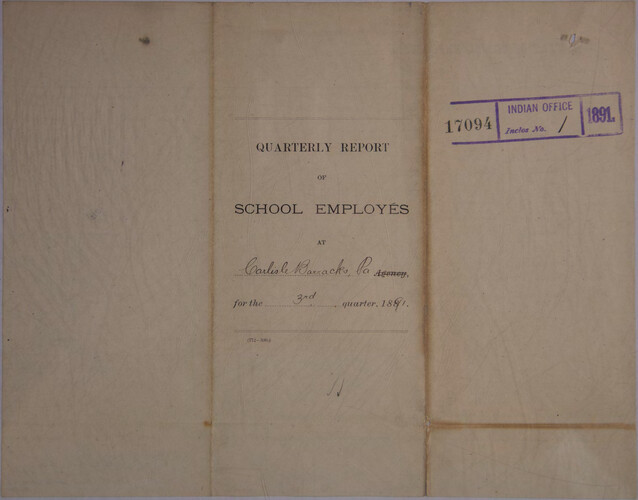 QUARTERLY REPORT
OF
SCHOOL EMPLOYÉS
AT
Carlisle Barracks, Pa Agency,
for the 3rd quarter, 1891.
17094
INDIAN OFFICE
Inclos No. 1
1891.